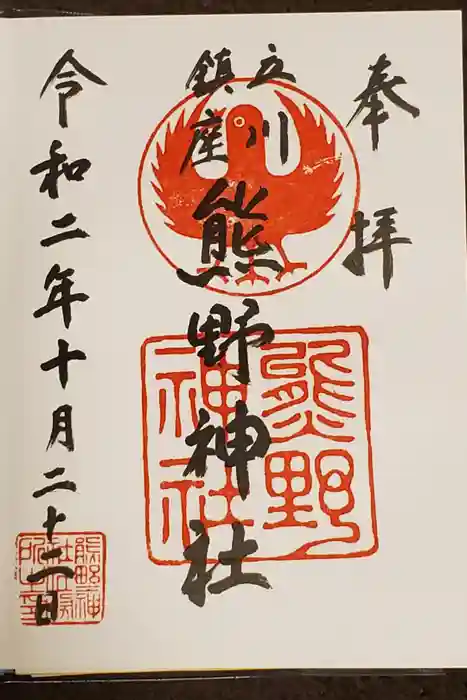 奉拝
立川
鎮座
熊野神社
令和二年十月二十二日
熊野
神社
熊野神
社社務
所之印